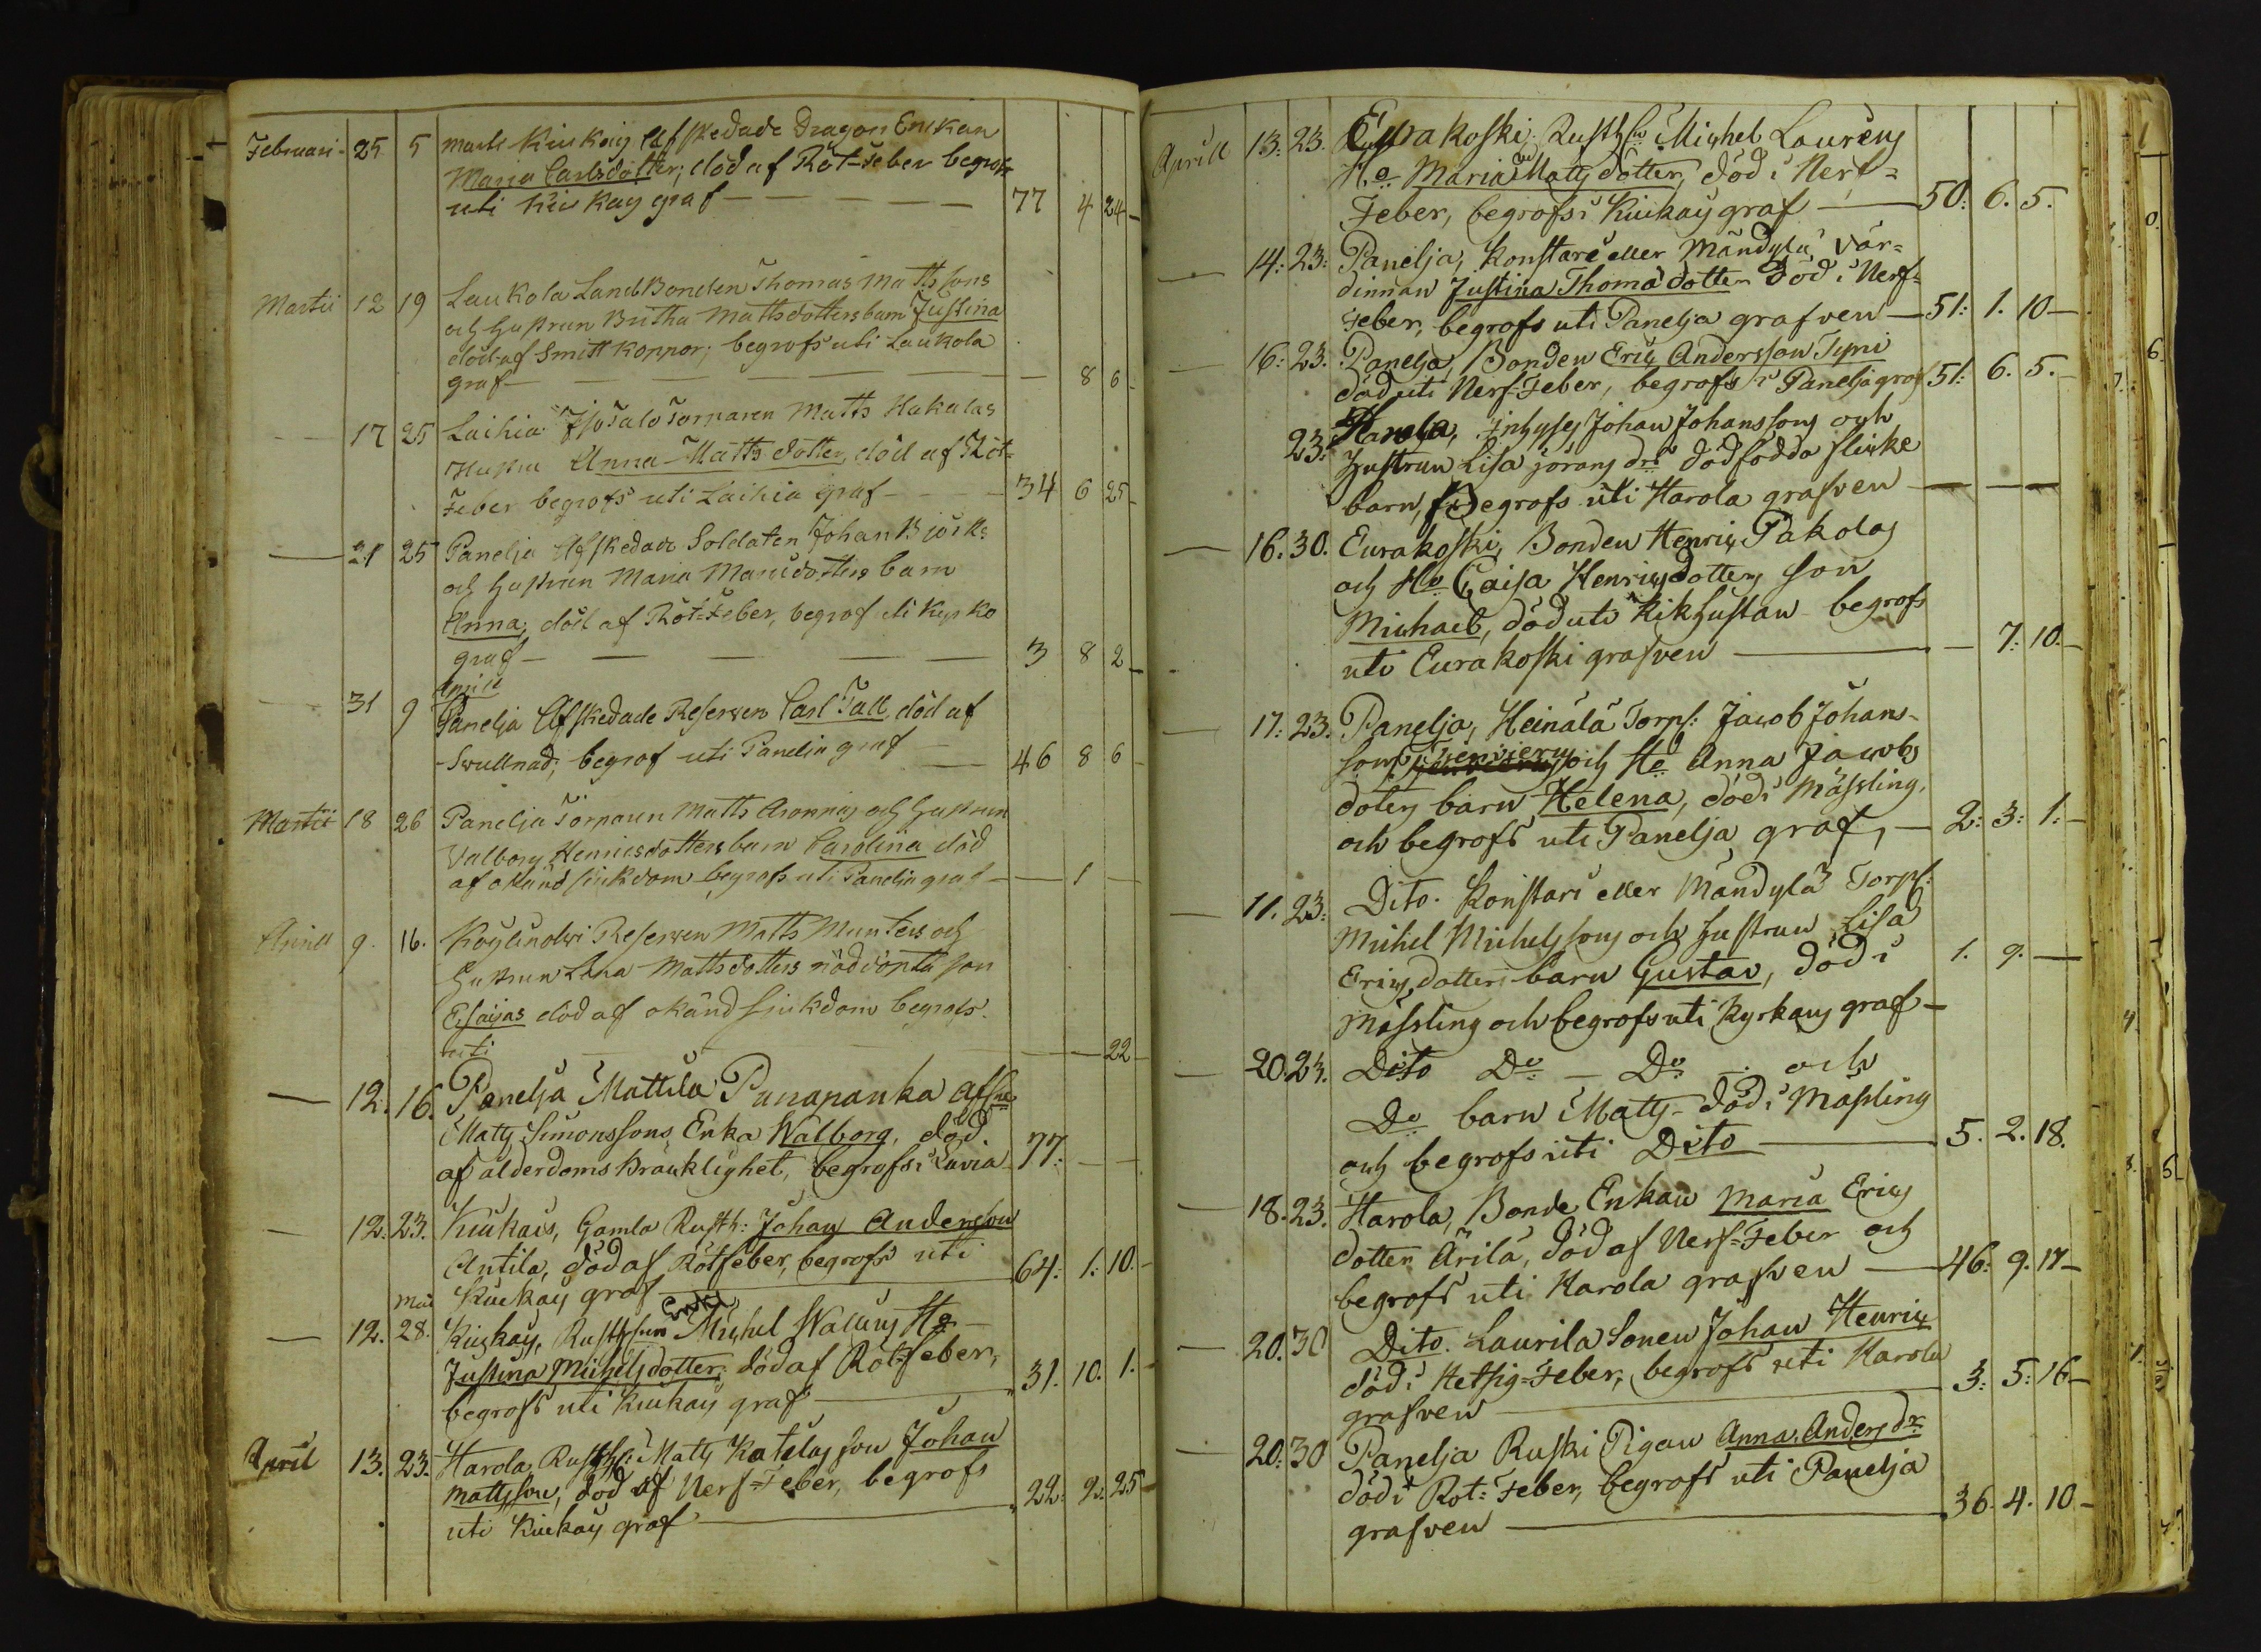 Februari 25 5 Matts Kiukais Afskedade Dragon Enckan
Maria Carlsdotter; död af Röt-Feber begrofs
uti Kiukais graf — 77 4 24
Martii 12 19 Laukola LandBonden Thomas Mattssons
och hustrun Britha Mattsdotters barn Justina
död af Smittkoppor; begrofs uti Laukola
graf — 8 6
17 25 Laihia Torparen Matts Hakalas
Hustru Anna Matts dotter död af Röt-
Feber begrofs uti Laihia graf — 34 6 25
21 25 Panelia Afskedade Soldaten Johan Björk
och hustrun Maria dotters barn
Anna; död af Röt-Feber, begrof
graf — 3 8 2
31 April 9 Panelia Afskedade Reserven Carl Tall, död af
Swullnad; begrof uti Panelia graf — 46 8 6
Martii 18 26 Panelia Torparen Matts och hustrun
Valborg Henricsdotters barn Carolina död
af okänd sjukdom begrafs uti Panelia graf — 1 —
Aprill 9. 16. Köyliinolvi Reserven Matts Munters och
Hustrun Lena Mattsdotters nöddöpta son
Esaijas död af okänd sjukdom begrofs
uti — 22
12. 16. Panelja Mattila Punapauka
Matts Simonssons Enka Walborg, död.
af ålderdoms bräcklighet, begrofs i Luvia 77: — —
12. 23. Kiukais, Gamla Rusth: Johan Andersson
Antila, död af Rötfeber, begrofs uti
Kiukais graf — 64: 1: 10.
12. Maii 28. Kiukais, Rusths Enka Michel Walins Ho
Justina Michelsdotter, död af Rötfeber,
begrofs uti Kiukais graf — 31. 10. 1.
April 13. 23. Harola, Rusth: Matts Katilas son Johan
Mattsson, död af Nerf-Feber, begrofs
uti Kiukais graf — 22: 9: 25
Aprill 13: 23. Eurakoski, Rusth Michel Laurens
Ho Maria Matts dotter, död i Nerf-
Feber, begrofs i Kiukais graf — 50: 6. 5.
14: 23: Panelja, Konstare eller Mändylä, vär-
dinnan Justina Thoma dotter död i Nerf-
Feber, begrofs uti Panelja grafven — 51: 1. 10
16: 23. Panelja, Bonden Eric Andersson Tyni
död uti Nerf-Feber, begrofs i Panelja graf 51: 6. 5.
23: Harola, Inhyses Johan Johanssons och
hustrun Lisa Jörans dr dödfödda flicke
barn, begrofs uti Harola grafven — — —
16. 30. Eurakoski, Bonden Henric Pakolas
och Ho Caisa Henricsdotters son
Michael, död uti Kikhustan begrofs
uti Eurakoski grafven — 7: 10.
17: 23. Panelja, Heinälä Torp: Jacob Johans-
sons och Ho Anna Jacobs
doters barn Helena, död i Mässling,
och begrofs uti Panelja graf, — 2: 3: 1:
11. 23: Dito. Konstari eller Mändylä Torp:
Michel Michelssons och hustrun Lisa
Erics dotters barn Gustav, död i 1. 9. —
Mässling och begrofs uti Kyrkans graf —
20. 23. Dito Do — Do — och
Do barn Matts död i Mässling
och begrofs uti Dito — 5. 2. 18.
18. 23. Harola, Bonde Enkan Maria Erics
dotter Ärilä, död af Nerf-Feber och
begrofs uti Harola grafven — 46: 9. 17
20. 30 Dito. Laurila Sonen Johan Henric
död i Hetsig-Feber, begrofs uti Harola
grafven — 3: 5: 16
20: 30 Panelja Ruski Pigan Anna Anders dr
död i Röt-Feber, begrofs uti Panelja
grafven — 36. 4. 10